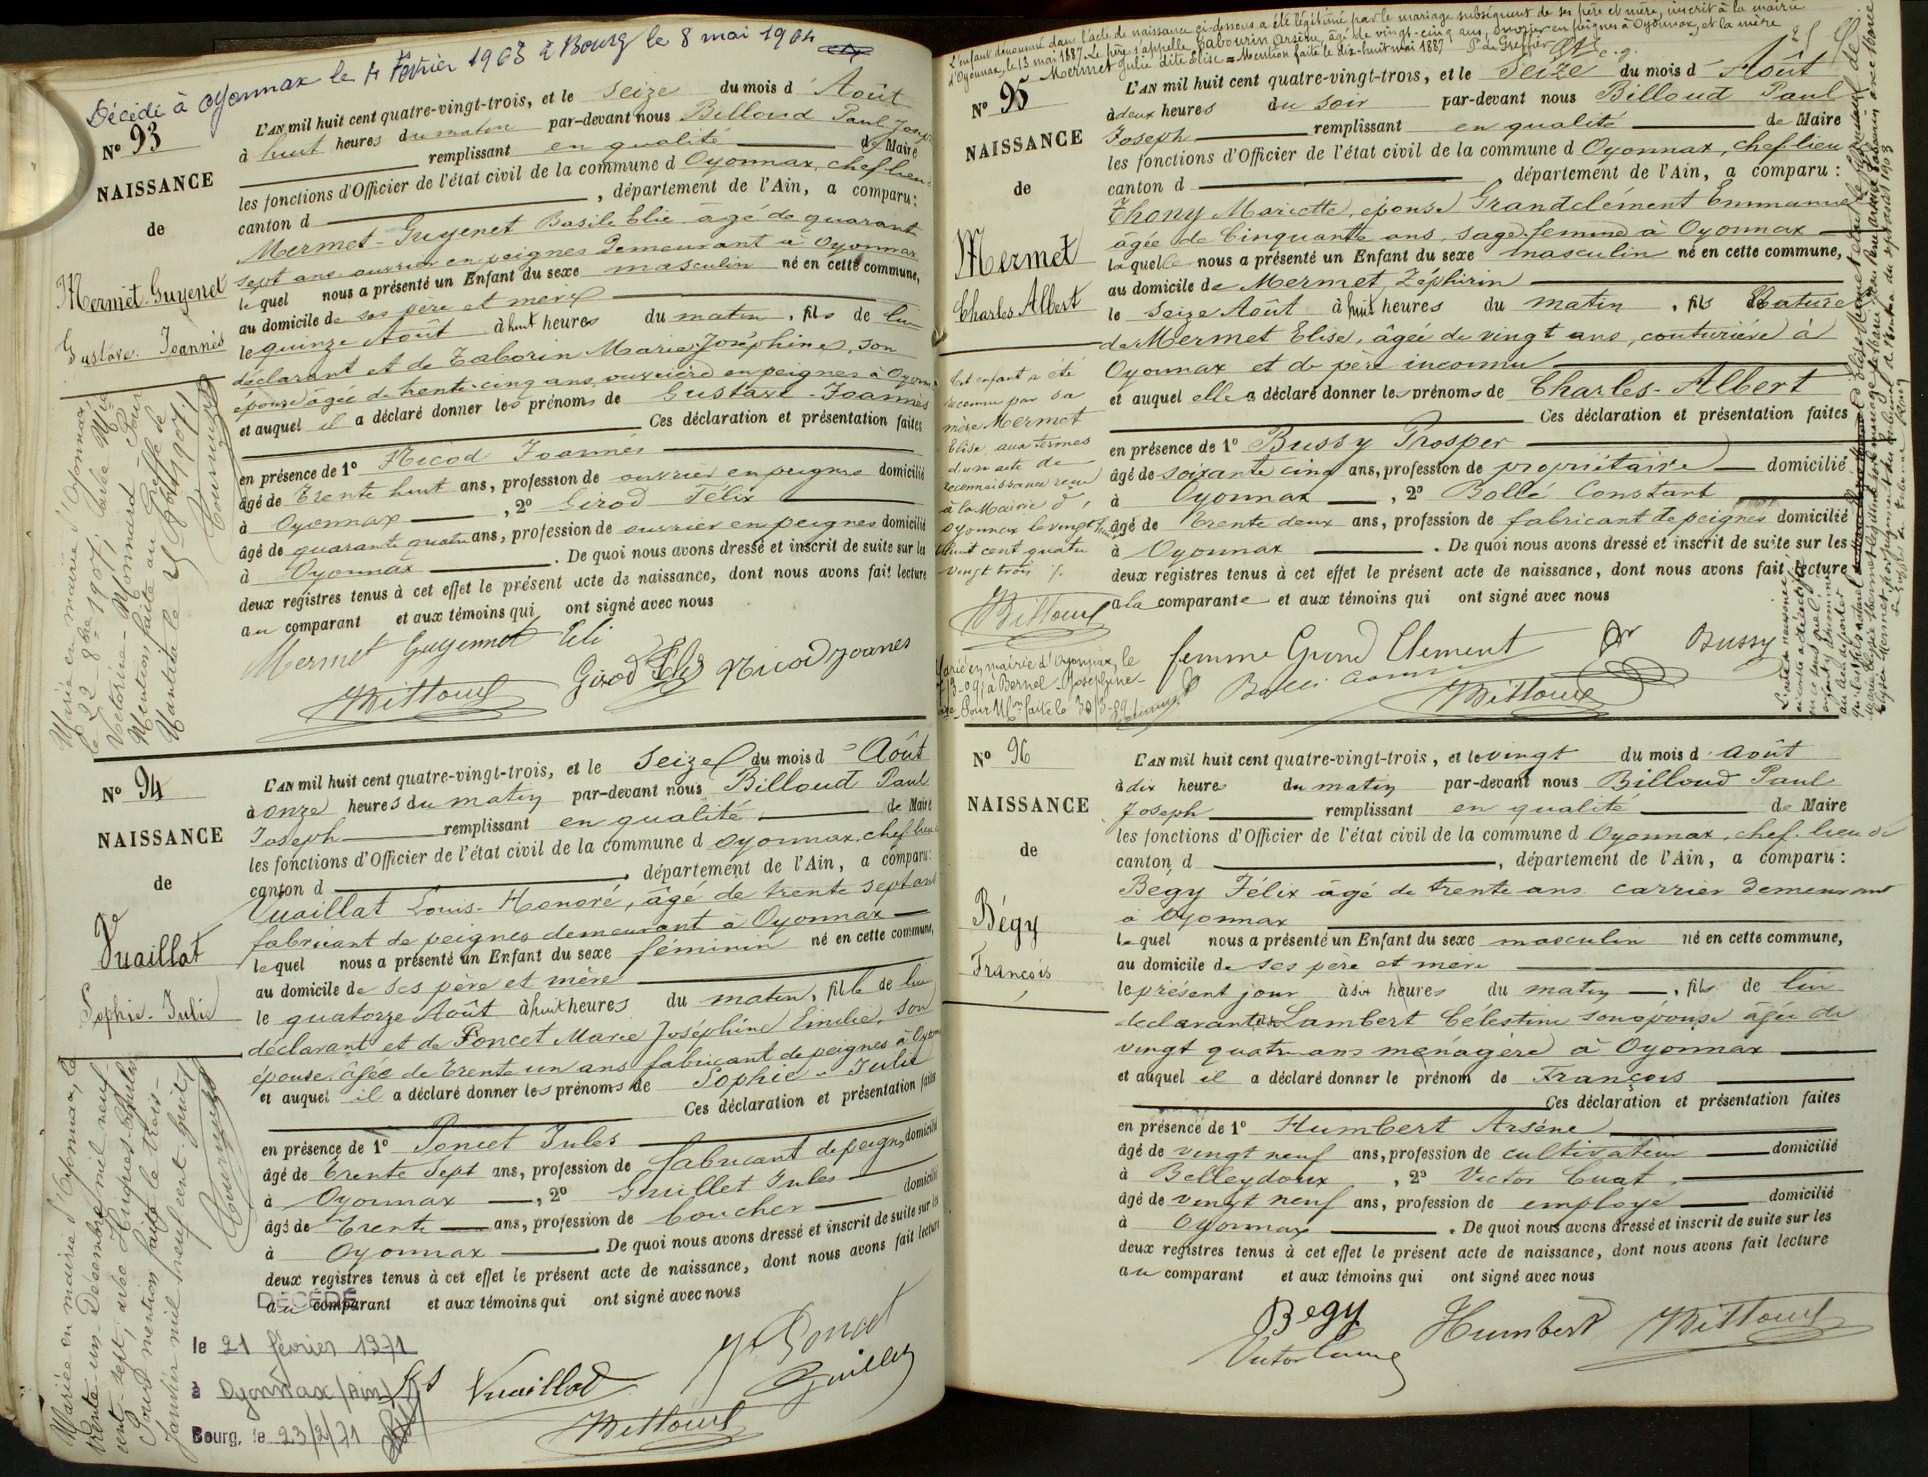 Décédé à Oyonnax le 4 Février 1963 à Bourg le 8 mai 1964
N° 93
NAISSANCE
de
Mermet-Guyenet
Gustave Joannès
L'AN mil huit cent quatre-vingt-trois, et le seize du mois d'Août
à huit heures du matin par-devant nous Billoud Paul Joseph
remplissant en qualité de Maire
les fonctions d'Officier de l'état civil de la commune d Oyonnax, chef-lieu
canton d , département de l'Ain, a comparu :
Mermet-Guyenet Basile Elie âgé de quarante
sept ans ouvrier en peignes demeurant à Oyonnax
lequel nous a présenté un Enfant du sexe masculin né en cette commune,
au domicile de ses père et mère
le quinze Août à huit heures du matin, fils de lui
déclarant et de Taborin Marie Joséphine, son
épouse âgée de trente-cinq ans, ouvrière en peignes à Oyonnax
et auquel il a déclaré donner les prénoms de Gustave-Joannès
Ces déclaration et présentation faites
en présence de 1° Nicod Joannès
âgé de trente huit ans, profession de ouvrier en peignes domicilié
à Oyonnax , 2° Girod Félix
âgé de quarante quatre ans, profession de ouvrier en peignes domicilié
à Oyonnax . De quoi nous avons dressé et inscrit de suite sur les
deux registres tenus à cet effet le présent acte de naissance, dont nous avons fait lecture
au comparant et aux témoins qui ont signé avec nous
Mermet Guyennet Eli
Girod Félix Nicod Joanes
Marié en mairie d'Oyonnax,
le 12 8bre 1907, avec Mlle
Mention faite au Greffe de
Nantua le
N° 94
NAISSANCE
de
Vuaillat
Sophie-Julie
L'AN mil huit cent quatre-vingt-trois, et le seize du mois d'Août
à onze heures du matin par-devant nous Billoud Paul
Joseph remplissant en qualité de Maire
les fonctions d'Officier de l'état civil de la commune d Oyonnax, chef-lieu
canton d , département de l'Ain, a comparu :
Vuaillat Louis-Honoré, âgé de trente sept ans
fabricant de peignes demeurant à Oyonnax
lequel nous a présenté un Enfant du sexe féminin né en cette commune,
au domicile de ses père et mère
le quatorze Août à huit heures du matin, fille de lui
déclarant et de Poncet Marie Joséphine Emilie, son
épouse, âgée de trente un ans fabricant de peignes à Oyonnax
et auquel il a déclaré donner les prénoms de Sophie-Julie
Ces déclaration et présentation faites
en présence de 1° Poncet Jules
âgé de trente sept ans, profession de fabricant de peignes domicilié
à Oyonnax , 2° Guillet Jules
âgé de trente ans, profession de boucher domicilié
à Oyonnax De quoi nous avons dressé et inscrit de suite sur les
deux registres tenus à cet effet le présent acte de naissance, dont nous avons fait lecture
au comparant et aux témoins qui ont signé avec nous
DÉCÉDÉE
le 21 février 1971
à Oyonnax (Ain)
Bourg, le 23/2/71
Vuaillat
J. Poncet
Guillet
Mariée en mairie d'Oyonnax, le
trente-un Décembre mil neuf
cent sept, avec
Pour mention faite le trois
Janvier mil neuf cent huit
L'enfant dénommé dans l'acte de naissance ci-dessous a été légitimé par le mariage subséquent de ses père et mère, inscrit à la mairie
d'Oyonnax, le 13 mai 1887. Le père s'appelle Tabourin Arsène, âgé de vingt-cinq ans, ouvrier en peignes à Oyonnax, et la mère
Mermet Julie dite Elise = Mention faite le dix-huit mai 1887
N° 95
NAISSANCE
de
Mermet
Charles Albert
L'AN mil huit cent quatre-vingt-trois, et le Seize du mois d'Août
à deux heures du soir par-devant nous Billoud Paul
Joseph remplissant en qualité de Maire
les fonctions d'Officier de l'état civil de la commune d Oyonnax, chef-lieu
canton d , département de l'Ain, a comparu :
Thony Mariette, épouse Grandclément Emmanuel
âgée de Cinquante ans, sage-femme à Oyonnax
laquelle nous a présenté un Enfant du sexe masculin né en cette commune,
au domicile de Mermet Zéphirin
le seize Août à huit heures du matin, fils Naturel
de Mermet Elise, âgée de vingt ans, couturière à
Oyonnax et de père inconnu
et auquel elle a déclaré donner les prénoms de Charles-Albert
Ces déclaration et présentation faites
en présence de 1° Bussy Prosper
âgé de soixante cinq ans, profession de propriétaire domicilié
à Oyonnax , 2° Bollé Constant
âgé de trente deux ans, profession de fabricant de peignes domicilié
à Oyonnax . De quoi nous avons dressé et inscrit de suite sur les
deux registres tenus à cet effet le présent acte de naissance, dont nous avons fait lecture
à la comparante et aux témoins qui ont signé avec nous
femme Grand Clement Bussy
Cet enfant a été
reconnu par sa
mère Mermet
Elise aux termes
d'un acte de
reconnaissance reçu
à la Mairie d'
Oyonnax le vingt
huit cent quatre
vingt trois
Marié en mairie d'Oyonnax, le
N° 96
NAISSANCE
de
Bégy
François
L'AN mil huit cent quatre-vingt-trois, et le vingt du mois d'août
à dix heures du matin par-devant nous Billoud Paul
Joseph remplissant en qualité de Maire
les fonctions d'Officier de l'état civil de la commune d Oyonnax, chef-lieu de
canton d , département de l'Ain, a comparu :
Bégy Félix âgé de trente ans carrier demeurant
à Oyonnax
lequel nous a présenté un Enfant du sexe masculin né en cette commune,
au domicile de ses père et mère
le présent jour à six heures du matin , fils de lui
déclarant et de Lambert Célestine son épouse âgée de
vingt quatre ans ménagère à Oyonnax
et auquel il a déclaré donner le prénom de François
Ces déclaration et présentation faites
en présence de 1° Humbert Arsène
âgé de vingt neuf ans, profession de cultivateur domicilié
à Belleydoux , 2° Victor Cuat
âgé de vingt neuf ans, profession de employé domicilié
à Oyonnax . De quoi nous avons dressé et inscrit de suite sur les
deux registres tenus à cet effet le présent acte de naissance, dont nous avons fait lecture
au comparant et aux témoins qui ont signé avec nous
Begy
Humbert